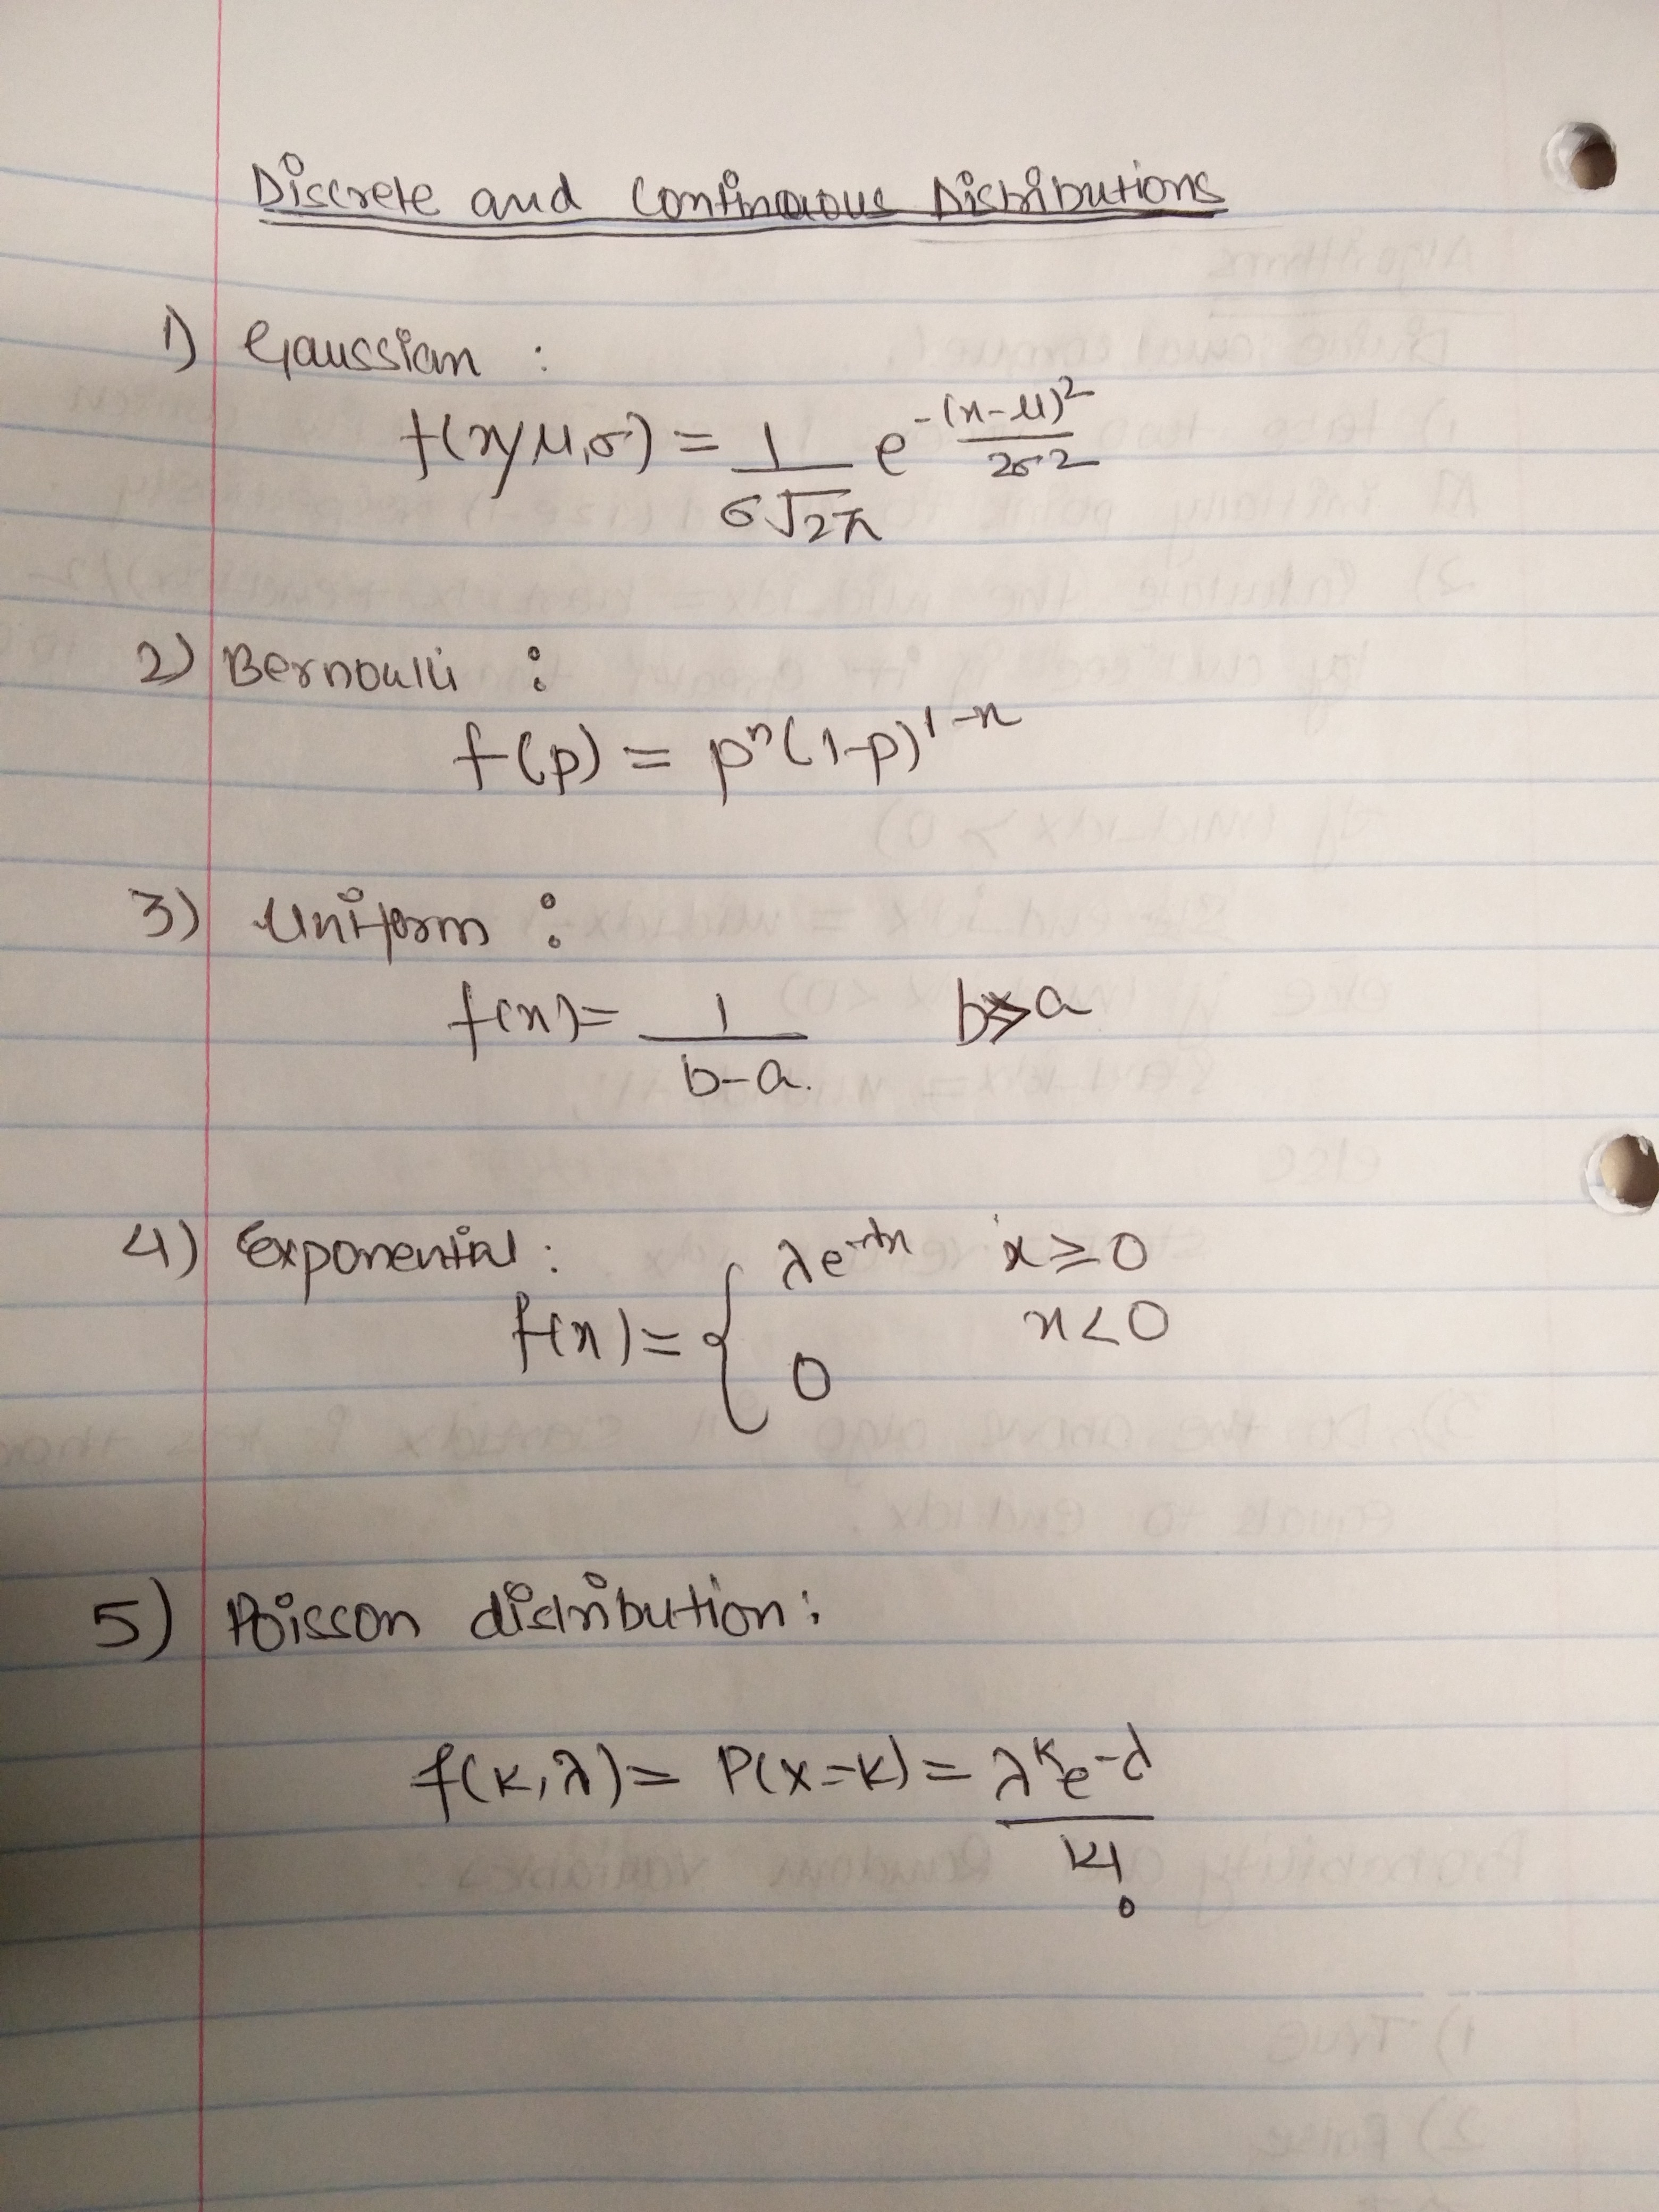 Discrete and Continuous Distributions
1) Gaussian :
f(x/μ,σ) = 1/(σ√2π) e^(-(x-μ)²/2σ²)
2) Bernoulli :
f(p) = pⁿ(1-p)^(1-x)
3) Uniform :
f(x) = 1/(b-a). b>a
4) Exponential :
f(x) = { λe^(-λx) x ≥ 0
0 x < 0
5) Poisson distribution :
f(k,λ) = P(X=k) = λ^k e^(-λ) / k!